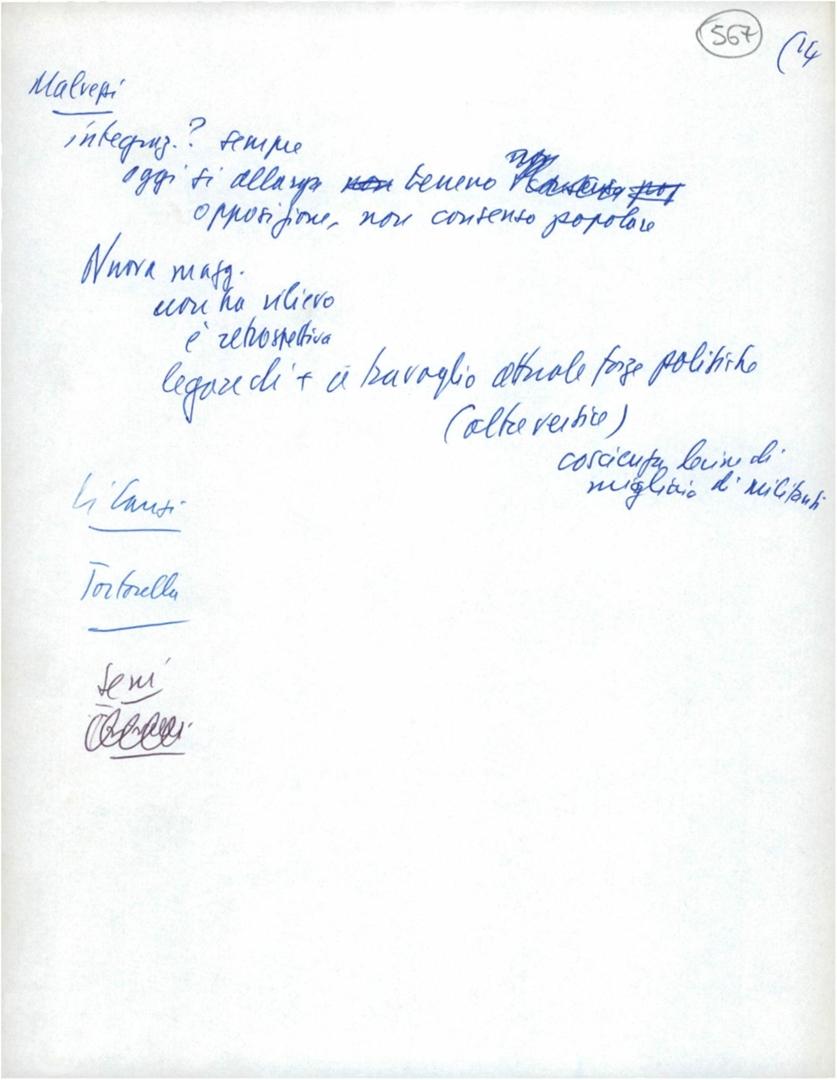 567 (14
Malvezzi
integraz.? sempre
oggi si allarga non terreno
opposizione, non consenso popolare
Nuova magg.
non ha rilievo
è retrospettiva
legare di + a travaglio attuale forze politiche
(oltre vertice)
coscienza decine di
migliaia di militanti
Li Causi
Tortorella
Seni